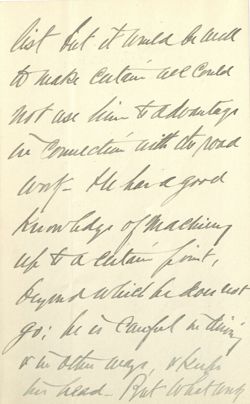 list but it would be well
to make certain we could
not use him to advantage
in connection with the road
work - He has a good
knowledge of machinery
up to a certain point,
beyond which he does not
go; he is careful in driving
& in other ways, & keeps
his head - But what